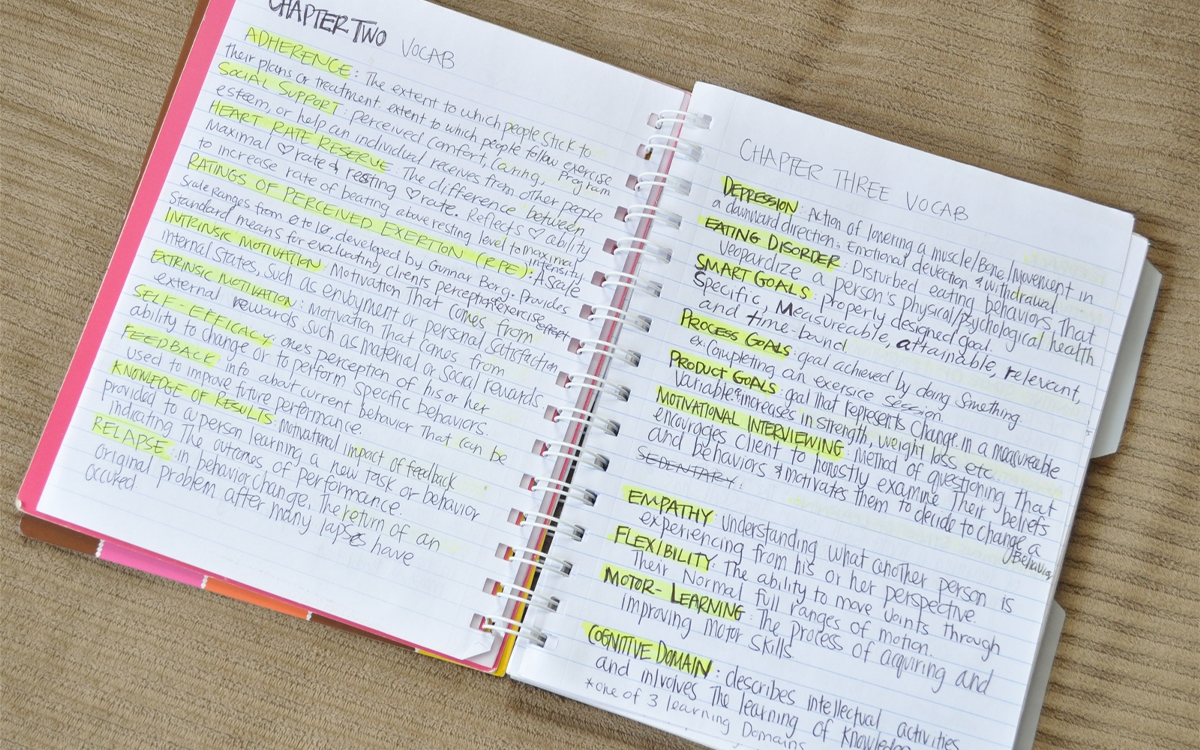 CHAPTER TWO VOCAB
ADHERENCE: The extent to which people stick to
their plans or treatment extent to which people follow exercise
Program
SOCIAL SUPPORT: perceived comfort, caring,
esteem, or help an individual receives from other people
HEART RATE RESERVE: The difference between
maximal ♡ rate & resting ♡ rate. Reflects ♡ ability
to increase rate of beating above resting level to maximal
intensity
RATINGS OF PERCEIVED EXERTION (RPE): A scale
Scale Ranges from 0 to 10 developed by Gunnar Borg. Provides
Standard means for evaluating clients perception of exercise
effort
INTRINSIC MOTIVATION: Motivation That comes from
internal States, such as enjoyment or personal Satisfaction
EXTRINSIC MOTIVATION: motivation That comes from
external rewards such as material or Social rewards
SELF-EFFICACY: one's perception of his or her
ability to change or to perform specific behaviors.
FEEDBACK: info about current behavior That can be
used to improve future performance.
KNOWLEDGE OF RESULTS motivational impact of feedback
provided to a person learning a new task or behavior
indicating The outcomes of performance.
RELAPSE: in behavior change, The return of an
original problem after many lapses have
occured
CHAPTER THREE VOCAB
DEPRESSION: Action of lowering a muscle/Bone/Movement in
a downward direction: Emotional dejection & withdrawal
EATING DISORDER: Disturbed eating behaviors That
jeopardize a person's physical/psychological health
SMART GOALS: properly designed goal.
Specific, Measureable, attainable, relevant,
and time-bound.
PROCESS GOALS: goal achieved by doing Something
ex: Completing an exercise Session
PRODUCT GOALS: goal that represents Change in a measureable
Variable increases in strength, weight loss etc.
MOTIVATIONAL INTERVIEWING: Method of questioning That
encourages client to honestly examine Their beliefs
and behaviors & motivates them to decide to change a
Behavior
SEDENTARY:
EMPATHY Understanding what another person is
experiencing from his or her perspective
FLEXIBILITY: The ability to move joints through
Their Normal full ranges of motion.
MOTOR-LEARNING: The process of acquiring and
improving motor skills
COGNITIVE DOMAIN: describes intellectual activities
and involves The learning of knowledge
*one of 3 learning Domains